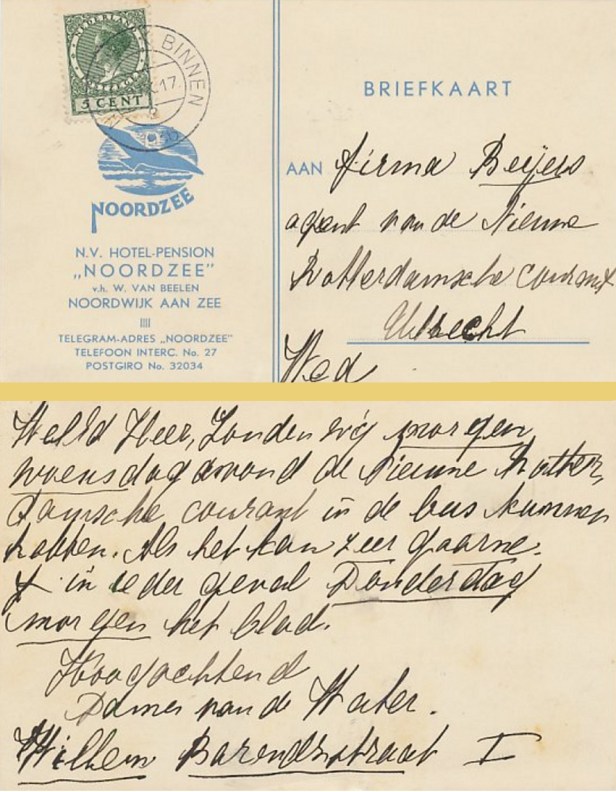 NEDERLAND
5 CENT
BINNEN
NOORDZEE
N.V. HOTEL-PENSION
„NOORDZEE”
v.h. W. VAN BEELEN
NOORDWIJK AAN ZEE
TELEGRAM-ADRES „NOORDZEE”
TELEFOON INTERC. No. 27
POSTGIRO No. 32034
BRIEFKAART
AAN Firma Beijers
agent van de Nieuwe
Rotterdamsche courant
Utrecht
Wed
WelEd Heer, Zouden wij morgen
woensdagavond de Nieuwe Rotter
damsche courant in de bus kunnen
hebben. Als het kan zeer gaarne.
in ieder geval Donderdag
morgen het blad.
Hoogachtend
Dames van de Water.
Willem Barendszstraat I